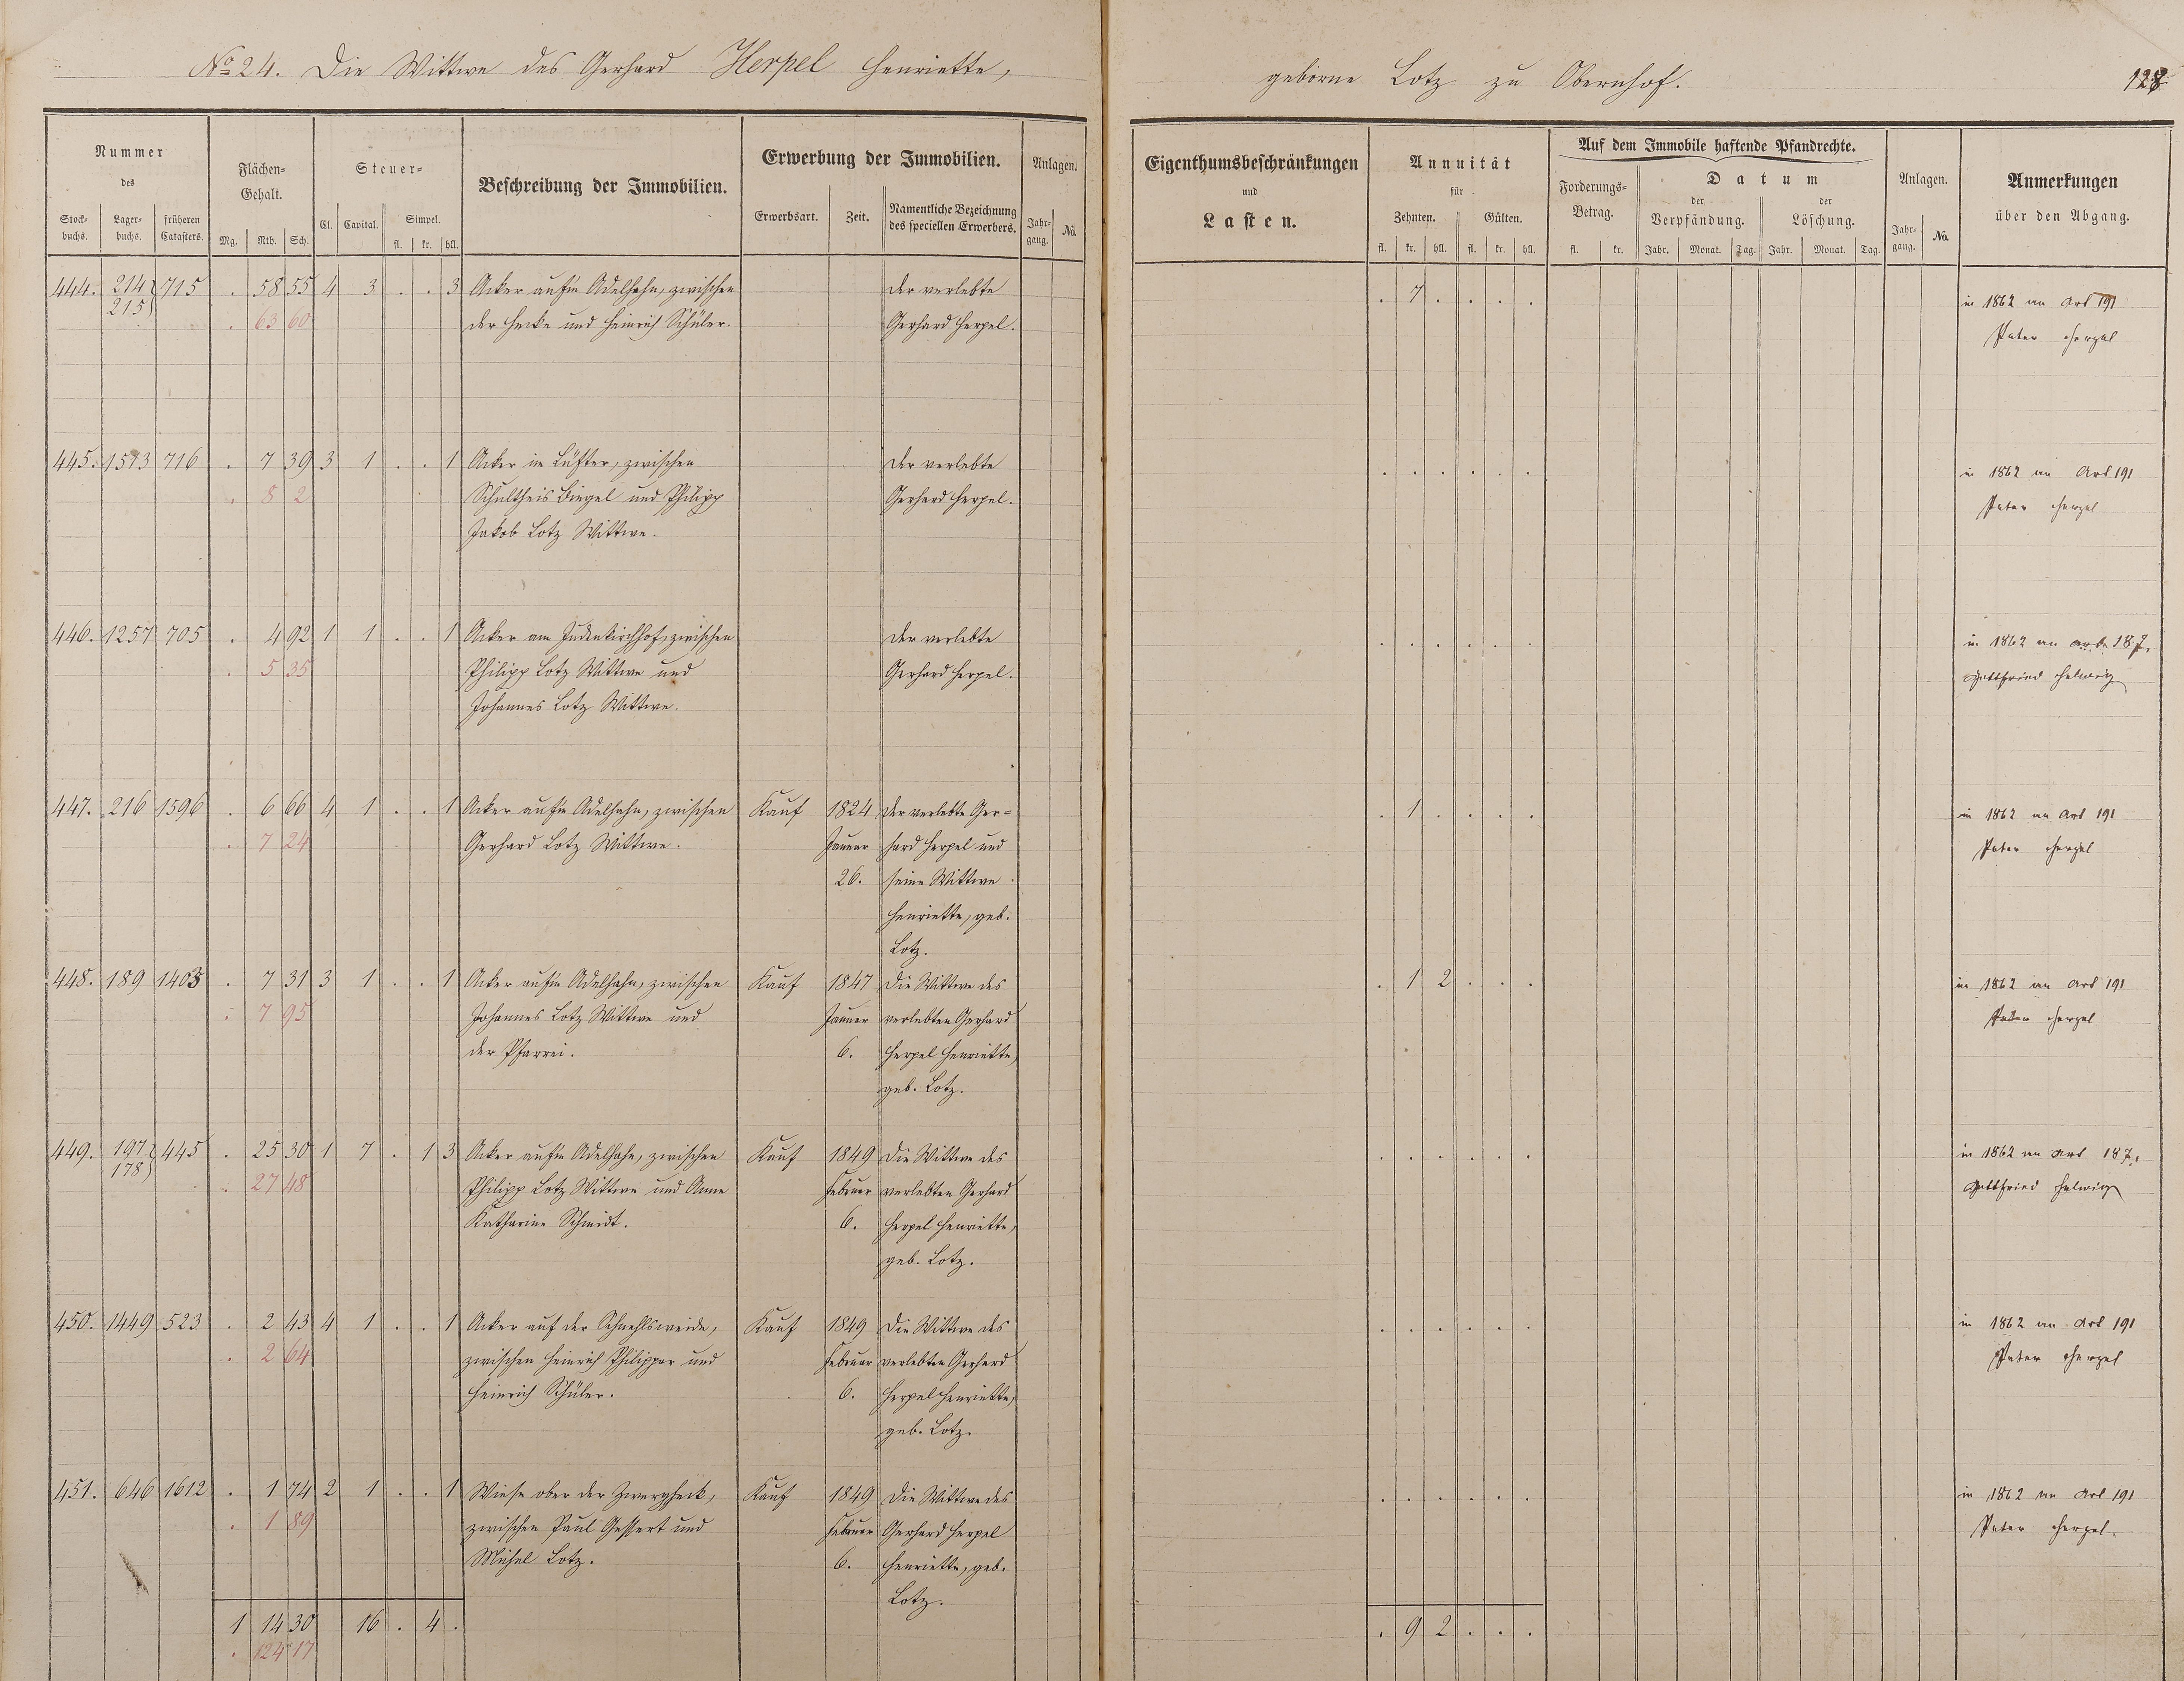 No 24. Die Wittwe des Gerhard Herpel Henriette,
geborne Lotz zu Obernhof.
128
Nummer
des
Stock-
buchs.
Lager-
buchs.
früheren
Catasters.
Flächen-
Gehalt.
Mg. Rth. Sch.
Steuer-
Cl. Capital. Simpel.
fl. kr. hll.
Beschreibung der Immobilien.
Erwerbung der Immobilien.
Erwerbsart. Zeit. Namentliche Bezeichnung
des speciellen Erwerbers.
Anlagen.
Jahr-
gang. No.
Eigenthumsbeschränkungen
und
Lasten.
Annuität
für
Zehnten. Gülten.
fl. kr. hll. fl. kr. hll.
Auf dem Immobile haftende Pfandrechte.
Forderungs-
Betrag.
fl. kr.
Datum
der
Verpfändung.
Jahr. Monat. Tag.
der
Löschung.
Jahr. Monat. Tag.
Anlagen.
Jahr-
gang. No.
Anmerkungen
über den Abgang.
444. 214 715 . 58 55 4 3 . . 3 Acker auf'm Adelhahn, zwischen der verlebte . 7 . . . . in 1862 an Art 191
215 . 63 60 der Hecke und Heinrich Schüler. Gerhard Herpel. Peter Herpel
445. 1513 716 . 7 39 3 1 . . 1 Acker im Lüfter, zwischen der verlebte . . . . . . in 1862 an Art 191
. 8 2 Schultheis Biegel und Philipp Gerhard Herpel. Peter Herpel
Jakob Lotz Wittwe.
446. 1257 705 . 4 92 1 1 . . 1 Acker am Judenkirchhof, zwischen der verlebte . . . . . . in 1862 an Art. 187.
. 5 35 Philipp Lotz Wittwe und Gerhard Herpel. Gottfried Helwig
Johannes Lotz Wittwe.
447. 216 1596 . 6 66 4 1 . . 1 Acker auf'm Adelhahn, zwischen Kauf 1824 der verlebte Ger- . 1 . . . . in 1862 an Art 191
. 7 24 Gerhard Lotz Wittwe. Januar hard Herpel und Peter Herpel
26. seine Wittwe
Henriette, geb.
Lotz.
448. 189 1403 . 7 31 3 1 . . 1 Acker auf'm Adelhahn, zwischen Kauf 1847 Die Wittwe des . 1 2 . . . in 1862 an Art 191
. 7 95 Johannes Lotz Wittwe und Januar verlebten Gerhard Peter Herpel
der Pfarrei. 6. Herpel Henriette,
geb. Lotz.
449. 197 445 . 25 30 1 7 . 1 3 Acker auf'm Adelhahn, zwischen Kauf 1849 Die Wittwe des . . . . . . in 1862 an Art 187.
178 . 27 48 Philipp Lotz Wittwe und Anne Februar verlebten Gerhard Gottfried Helwig
Katharine Schmidt. 6. Herpel Henriette,
geb. Lotz.
450. 1449 523 . 2 43 4 1 . . 1 Acker auf der Schnehlsweide, Kauf 1849 Die Wittwe des . . . . . . in 1862 an Art 191
. 2 64 zwischen Heinrich Philippar und Februar verlebten Gerhard Peter Herpel
Heinrich Schüler. 6. Herpel Henriette,
geb. Lotz.
451. 646 1612 . 1 74 2 1 . . 1 Wiese ober der Zwergheck, Kauf 1849 Die Wittwe des . . . . . . in 1862 an Art 191
. 1 89 zwischen Paul Gessert und Februar Gerhard Herpel Peter Herpel.
Michel Lotz. 6. Henriette, geb.
Lotz.
1 14 30 16 . 4 . . 9 2 . . .
. 124 17